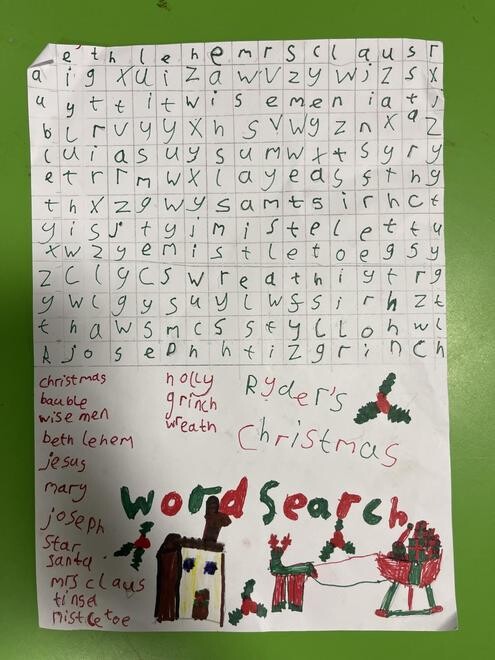 e t h l e h e m r s c l a u s r
a i g x u i z a w v z y w j z s x
u y t t i t w i s e m e n i a t j
b l r v y y x h s v w y z n x a z
l u i a s u y s u m w x t s y r y
e t r r m w x l a y e a s s t h g
t h x z g w y s a m t s i r h c t
y i s j t y j m i s t e l e t t u
x w z y e m i s t l e t o e g s y
z c l y c s w r e a t h i y t r g
y w l g y s u y l w s s i r h z t
t h a w s m c s s t y l l o h w l
k j o s e p h h t i z g r i n c h
christmas
bauble
wise men
beth lehem
jesus
mary
joseph
star
santa
mrs claus
tinsel
mistletoe
holly
grinch
wreath
Ryder's
Christmas
word search